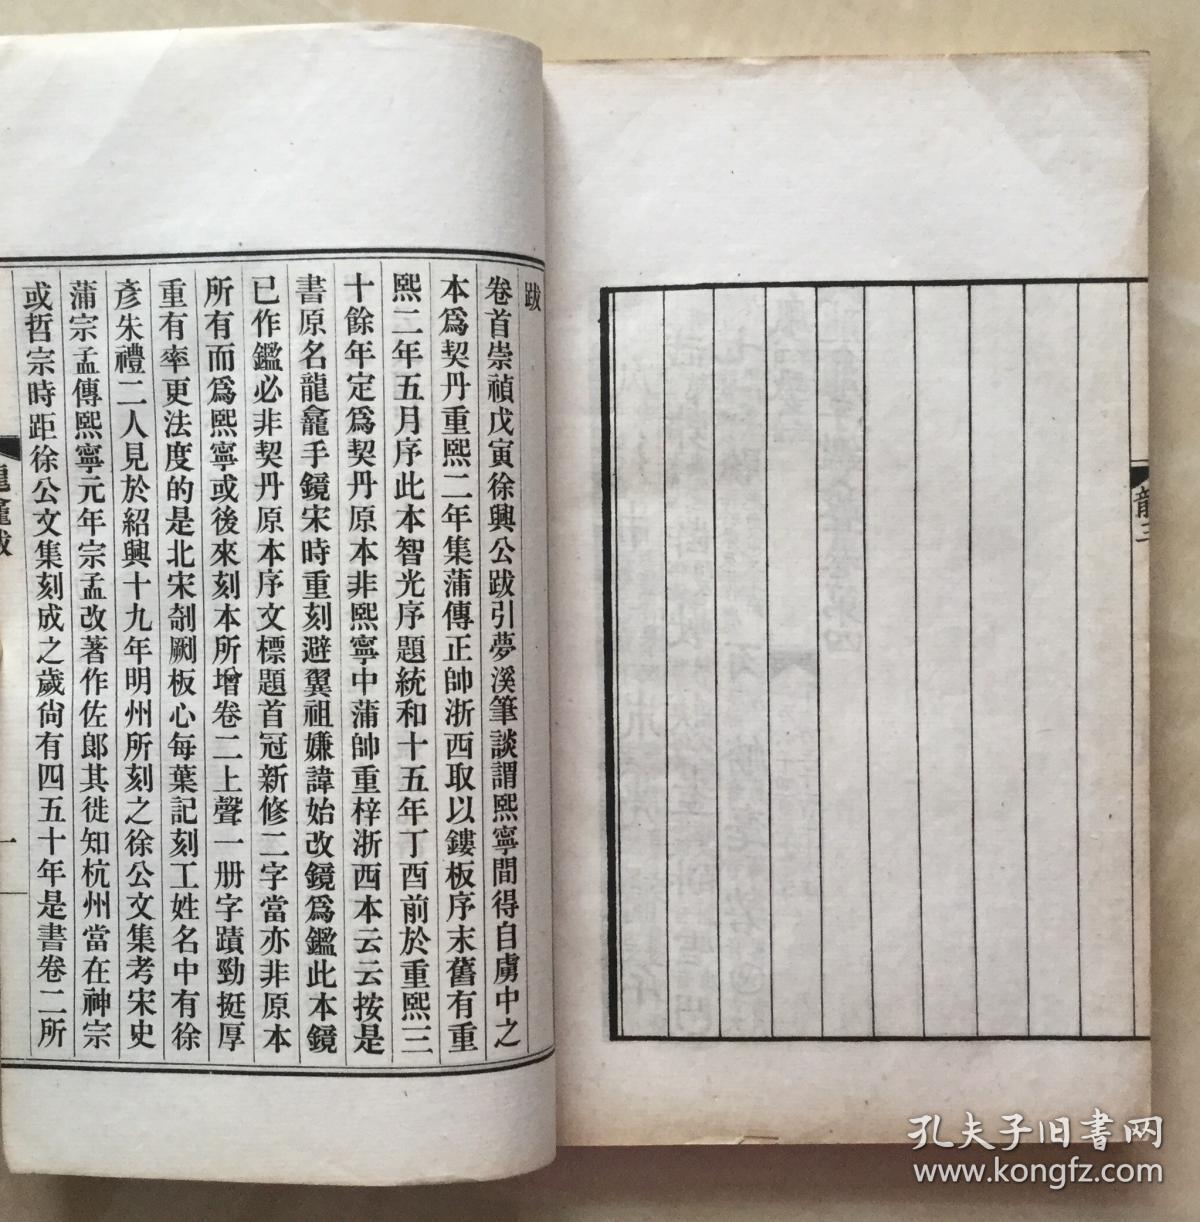 跋
卷首崇禎戊寅徐興公跋引夢溪筆談謂熙寧間得自虜中之
本爲契丹重熙二年集蒲傳正帥浙西取以鏤板序末舊有重
熙二年五月序此本智光序題統和十五年丁酉前於重熙三
十餘年定爲契丹原本非熙寧中蒲帥重梓浙西本云云按是
書原名龍龕手鏡宋時重刻避翼祖嫌諱始改鏡爲鑑此本鏡
已作鑑必非契丹原本序文標題首冠新修二字當亦非原本
所有而爲熙寧或後來刻本所增卷二上聲一册字蹟勁挺厚
重有率更法度的是北宋剞劂板心每葉記刻工姓名中有徐
彥朱禮二人見於紹興十九年明州所刻之徐公文集考宋史
蒲宗孟傳熙寧元年宗孟改著作佐郎其徙知杭州當在神宗
或哲宗時距徐公文集刻成之歲尙有四五十年是書卷二所
龍龕跋
一
龍三
孔夫子旧書网
www.kongfz.com